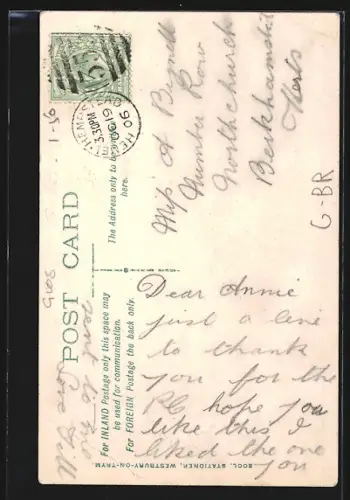 POST CARD
For INLAND Postage only this space may
be used for communication.
For FOREIGN Postage the back only.
The Address only to be
here.
HEMEL HEMP
3.30PM
OC 19
06
Miss A
Row
Northchurch
Berkhamsted
Herts
Dear Annie
just a line
to thank
you for the
PC hope you
like this I
liked the one
you
sent to me
Love
BOOL, STATIONER, WESTBURY-ON-TRYM.
1-56
G-BR